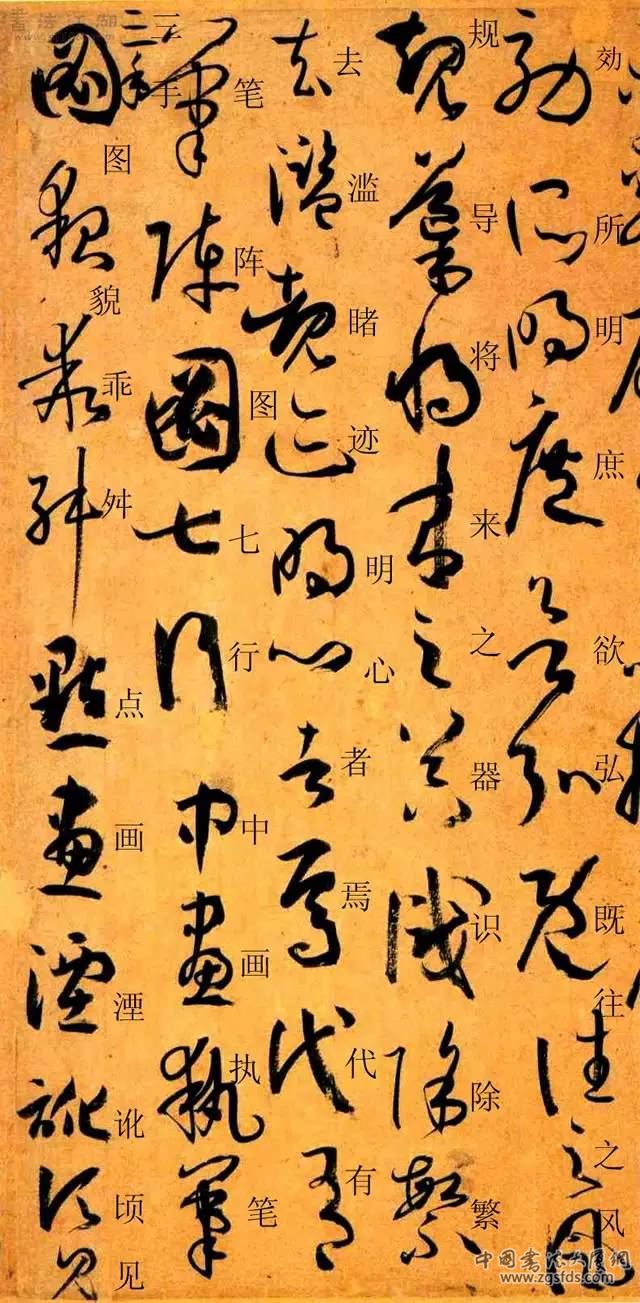 效所明庶欲弘既往之风
规导将来之器识除繁
去滥睹迹明心者焉代有
笔阵图七行中画执笔
三手
图貌乖舛点画湮讹顷见
書法江湖
中国书法发展网
www.zgsfds.com